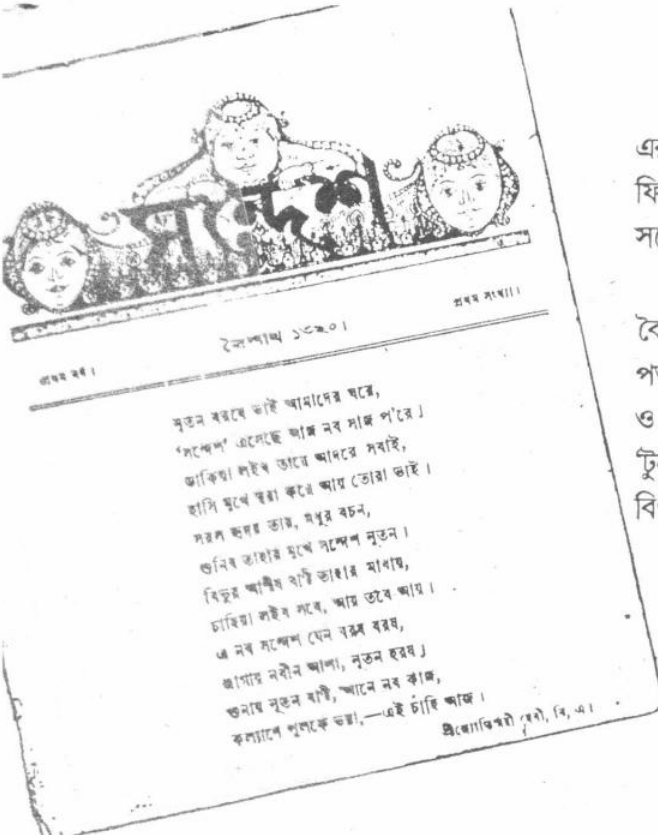 সন্দেশ
প্রথম বর্ষ। বৈশাখ ১৩২০। প্রথম সংখ্যা।
নূতন বরষে ভাই আমাদের ঘরে,
‘সন্দেশ’ এসেছে আজ নব সাজ প'রে।
ডাকিয়া লইব তারে আদরে সবাই,
হাসি মুখে ত্বরা করে আয় তোরা ভাই।
সরল হৃদয় তার, মধুর বচন,
শুনিব তাহার মুখে সন্দেশ নূতন।
বিভুর আশীষ বাণী তাহার মাথায়,
চাহিয়া লইব সবে, আয় তবে আয়।
এ নব সন্দেশ যেন বরষ বরষ,
জাগায় নবীন আশা, নূতন হরষ।
শুনায় নূতন বাণী, আনে নব কাজ,
কল্যাণে পুলকে ভরা,—এই চাহি আজ।
শ্রীজ্যোতির্ম্ময়ী দেবী, বি, এ।
ও